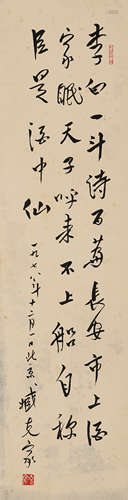 李白一斗诗百篇长安市上酒
家眠天子呼来不上船自称
臣是酒中仙
一九七八年十二月一日北京
臧克家